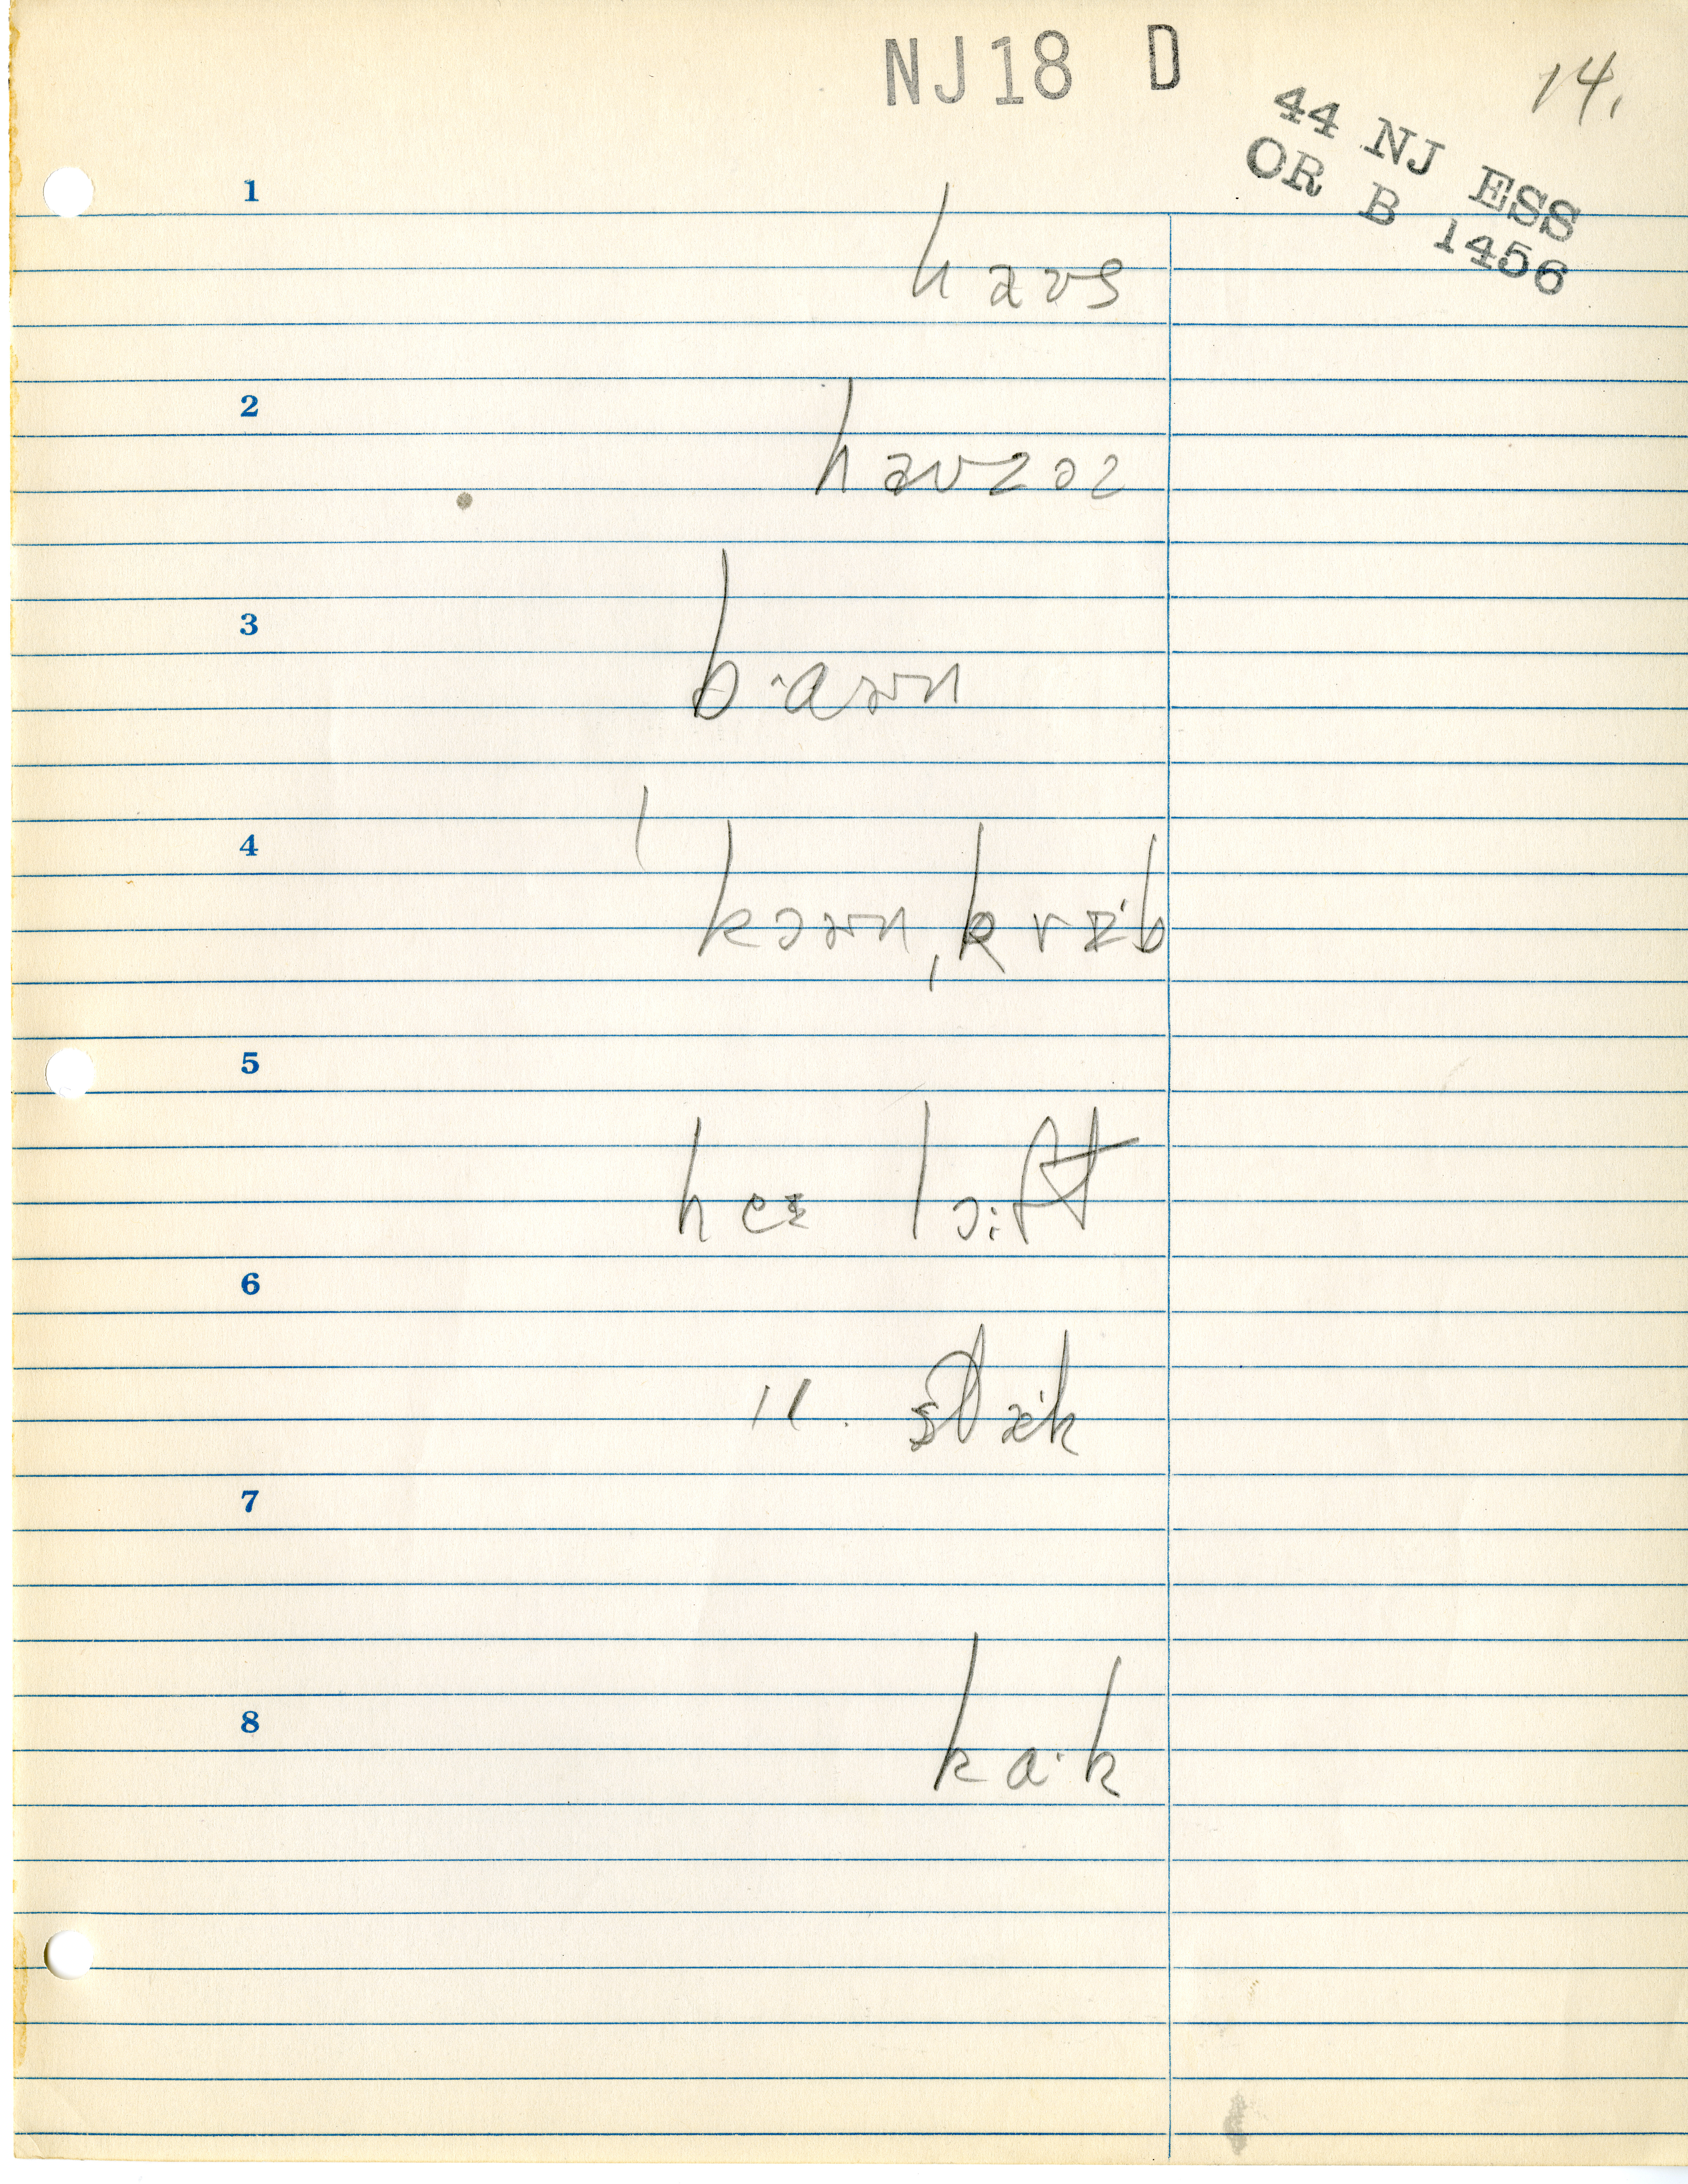 NJ18 D
14.
44 NJ ESS
OR B 1456
1
haʊs
2
haʊzəz
3
b·aɚn
4
kɔɚn, kræ·b
5
heɪ lɔ:ft
6
". stæ·k
7
8
ka·k